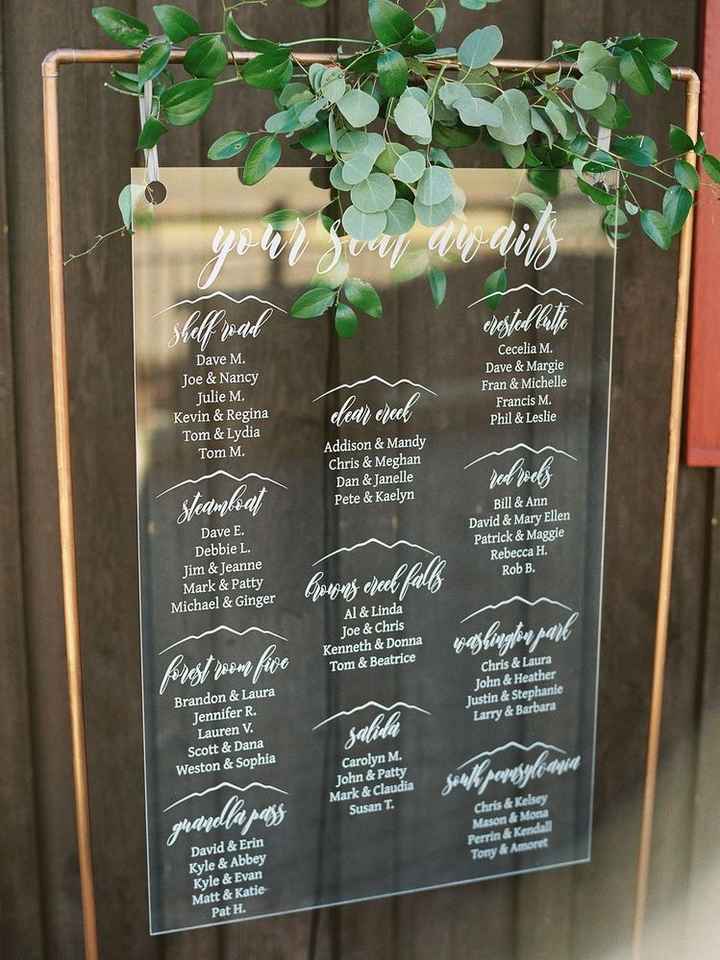 your seat awaits
shelf road
Dave M.
Joe & Nancy
Julie M.
Kevin & Regina
Tom & Lydia
Tom M.
steamboat
Dave E.
Debbie L.
Jim & Jeanne
Mark & Patty
Michael & Ginger
forest room five
Brandon & Laura
Jennifer R.
Lauren V.
Scott & Dana
Weston & Sophia
guanella pass
David & Erin
Kyle & Abbey
Kyle & Evan
Matt & Katie
Pat H.
clear creek
Addison & Mandy
Chris & Meghan
Dan & Janelle
Pete & Kaelyn
browns creek falls
Al & Linda
Joe & Chris
Kenneth & Donna
Tom & Beatrice
salida
Carolyn M.
John & Patty
Mark & Claudia
Susan T.
crested butte
Cecelia M.
Dave & Margie
Fran & Michelle
Francis M.
Phil & Leslie
red rocks
Bill & Ann
David & Mary Ellen
Patrick & Maggie
Rebecca H.
Rob B.
washington park
Chris & Laura
John & Heather
Justin & Stephanie
Larry & Barbara
south pennsylvania
Chris & Kelsey
Mason & Mona
Perrin & Kendall
Tony & Amoret